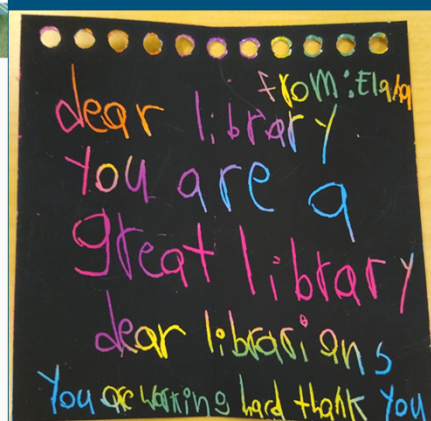 from: Elaha
dear library
You are a
great library
dear librarians
You are working hard thank You